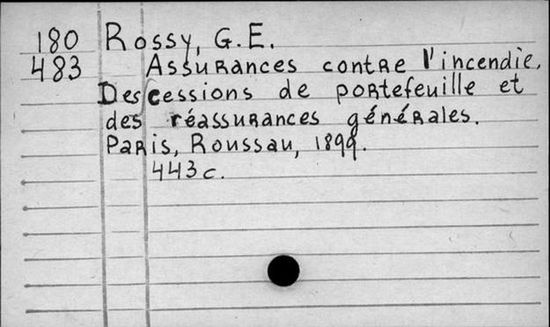 180 Rossy, G.E.
483 Assurances contre l'incendie.
Des cessions de portefeuille et
des réassurances générales.
Paris, Roussau, 1899.
443 c.